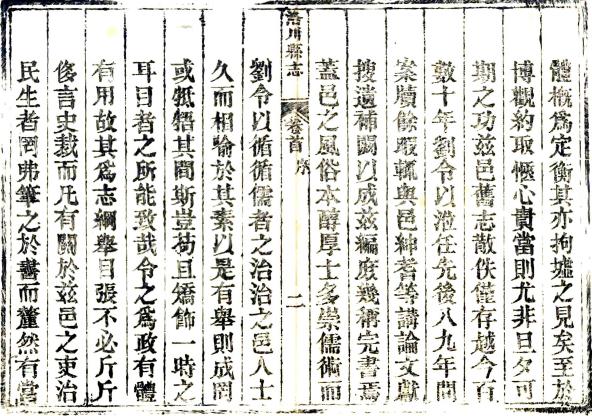 體概爲定衡其亦拘墟之見矣至於
博觀約取愜心貴當則尤非旦夕可
期之功茲邑舊志散佚僅存越今百
數十年劉令以涖任先後八九年間
案牘餘暇輒與邑紳耆等講論文獻
搜遺補闕以成茲編庶幾稱完書焉
蓋邑之風俗本醇厚士多崇儒術而
洛川縣志
卷首 序
二
劉令以循循儒者之治治之邑人士
久而相驗於其素以是有舉則成罔
或牴牾其間斯豈苟且矯飾一時之
耳目者之所能致哉令之爲政有體
有用故其爲志綱舉目張不必斤斤
侈言史裁而凡有關於茲邑之吏治
民生者罔弗筆之於書而釐然有當